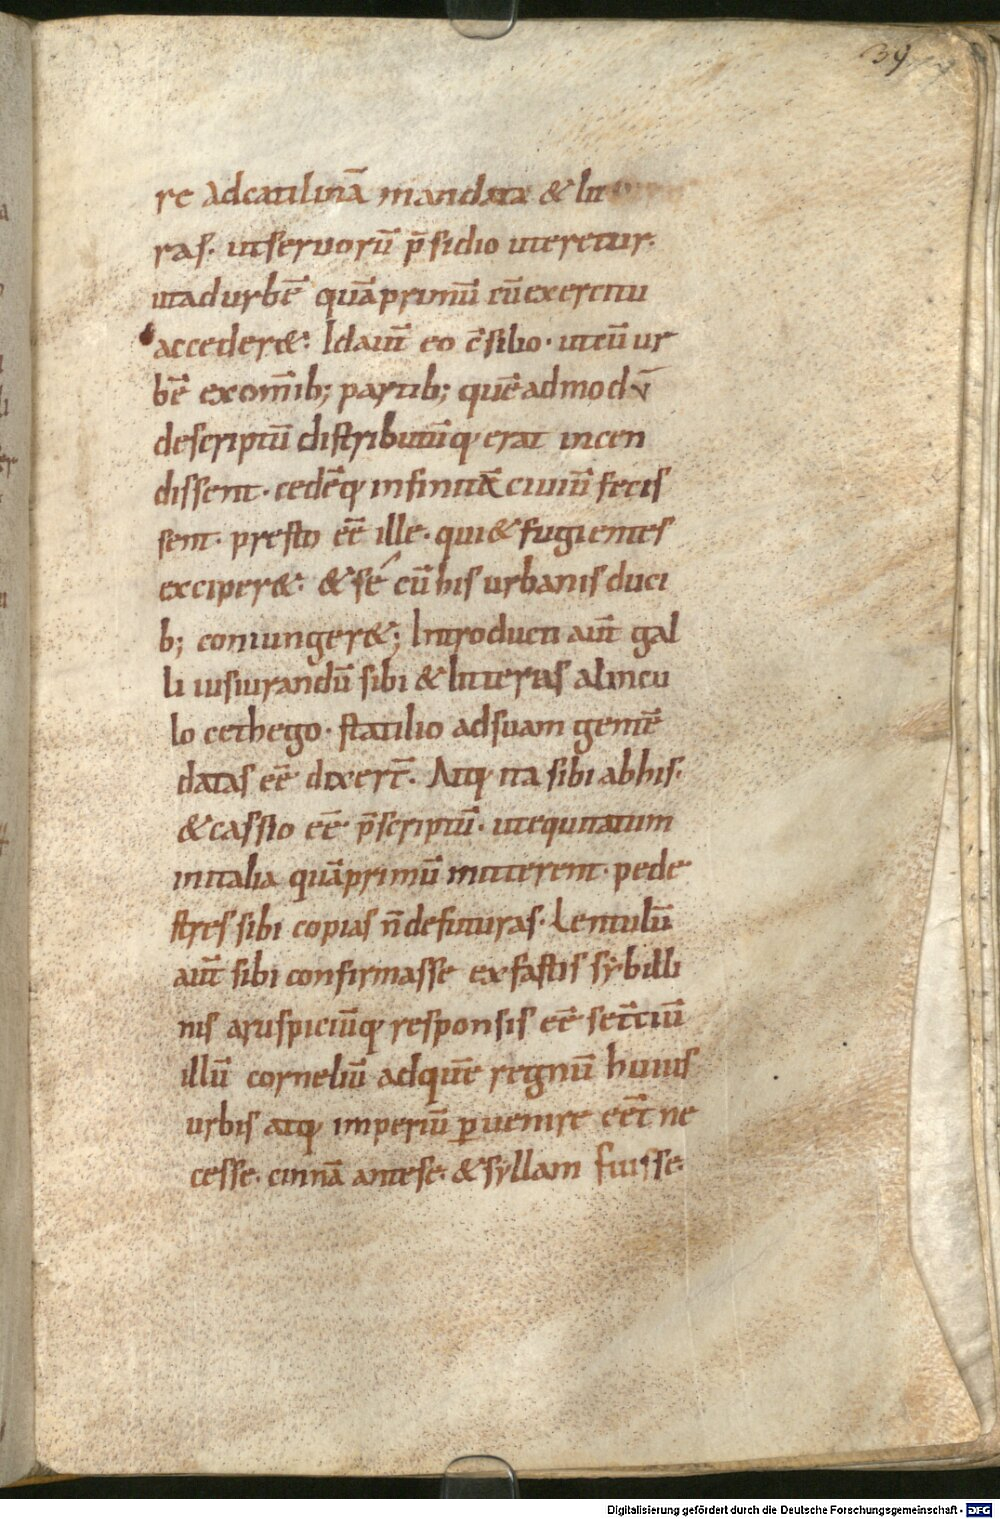 39
re adcatilinā mandata & litt
ras. utseruorū p̄sidio uteretur.
utadurbē quāprimū cūexercitu
acceder&. Idaut̄ eo c̄silio. utcū ur
bē exom̄ib; partib; quēadmodū
descriptū distributūq; erat incen
dissent. cedēq; infinitā ciuiū fecis
sent. presto eē ille. qui&fugientes
exciper&. &sé cū his urbanis duci
b; coniunger&; Introducti aut̄ gal
li iusiurandū sibi & litteras alincu
lo cethego. statilio adsuam gentē
datas eē dixer̄t. Atq; ita sibi abhis.
&cassio eē p̄scriptū. utequitatum
initalia quāprimū mitterent. pede
stres sibi copias n̄defuturas. Lentulū
aut̄ sibi confirmasse exfastis sẏbilli
nis aruspiciūq; responsis eē se t̄tiū
illū corneliū adquē regnū huius
urbis atq; imperiū ꝑuenire eēt ne
cesse. cinnā antese. &sẏllam fuisse.
Digitalisierung gefördert durch die Deutsche Forschungsgemeinschaft - DFG